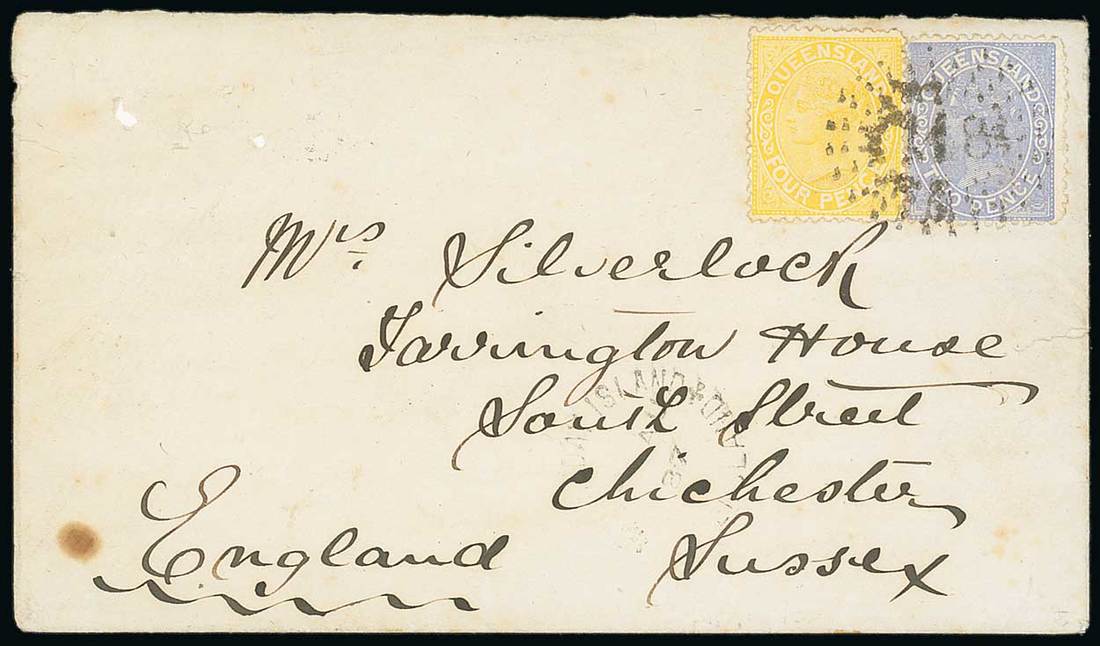 QUEENSLAND
FOUR PENCE
QUEENSLAND
TWO PENCE
Mrs Silverlock
Farrington House
South Street
Chichester
Sussex
England
ISLAND